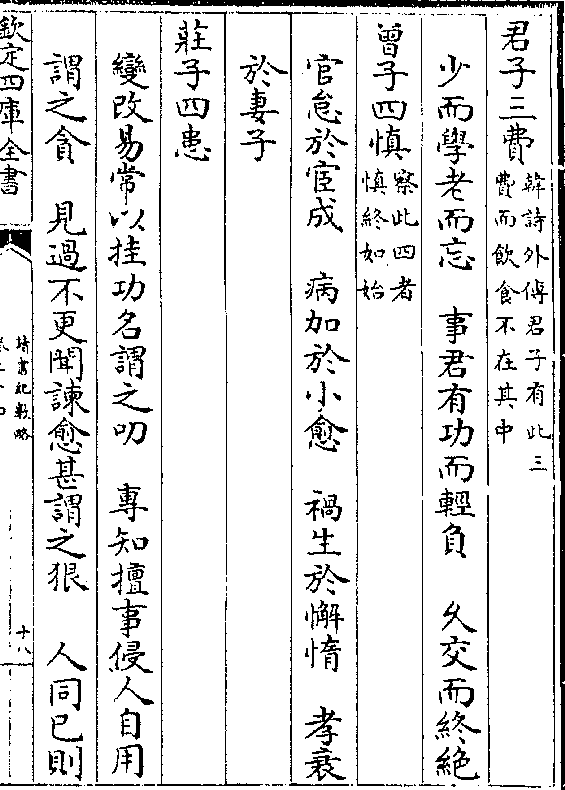 君子三費韓詩外傳君子有此三
費而飲食不在其中
少而學老而忘　事君有功而輕負　久交而終絕
曾子四慎察此四者
慎終如始
官怠於宦成　病加於小愈　禍生於懈惰　孝衰
於妻子
莊子四患
變改易常以挂功名謂之叨　專知擅事侵人自用
謂之貪　見過不更聞諫愈甚謂之狠　人同已則
欽定四庫全書
讀書紀數略
十八